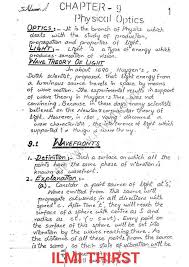 CHAPTER - 9
1
Physical Optics
OPTICS:- It is the branch of Physics which
deals with the study of production,
propagation and properties of light.
LIGHT:- Light is a type of energy which
produces sensation of vision.
WAVE THEORY OF LIGHT
In about 1680 Huygen's a
Dutch scientist, proposed that light energy from
a luminous source travels in space by means
of wave motion. The experimental results in support
of wave theory in Huygen's time was not
convincing. Therefore most of the scientists
believed on the Newton's corpuscular theory of
light. However, in 1801, Young observed
the interference of light which
supported Huygen's wave theory.
9.1 WAVEFRONTS
1. Definition:- Such a surface on which all the
points have the same phase of vibration is
known as wavefront.
2. Explanation:-
(a). Consider a point source of light at S.
Waves emitted from this source will
propagate outwards in all directions with
speed c. After time t, they will reach the
surface of a sphere with centre as S and
radius as ct. Every point on
the surface of this sphere will be set into
vibration by the waves reaching there. As
the distance of all these points from the source
is the same, so their state of vibration will be
ILMI THIRST